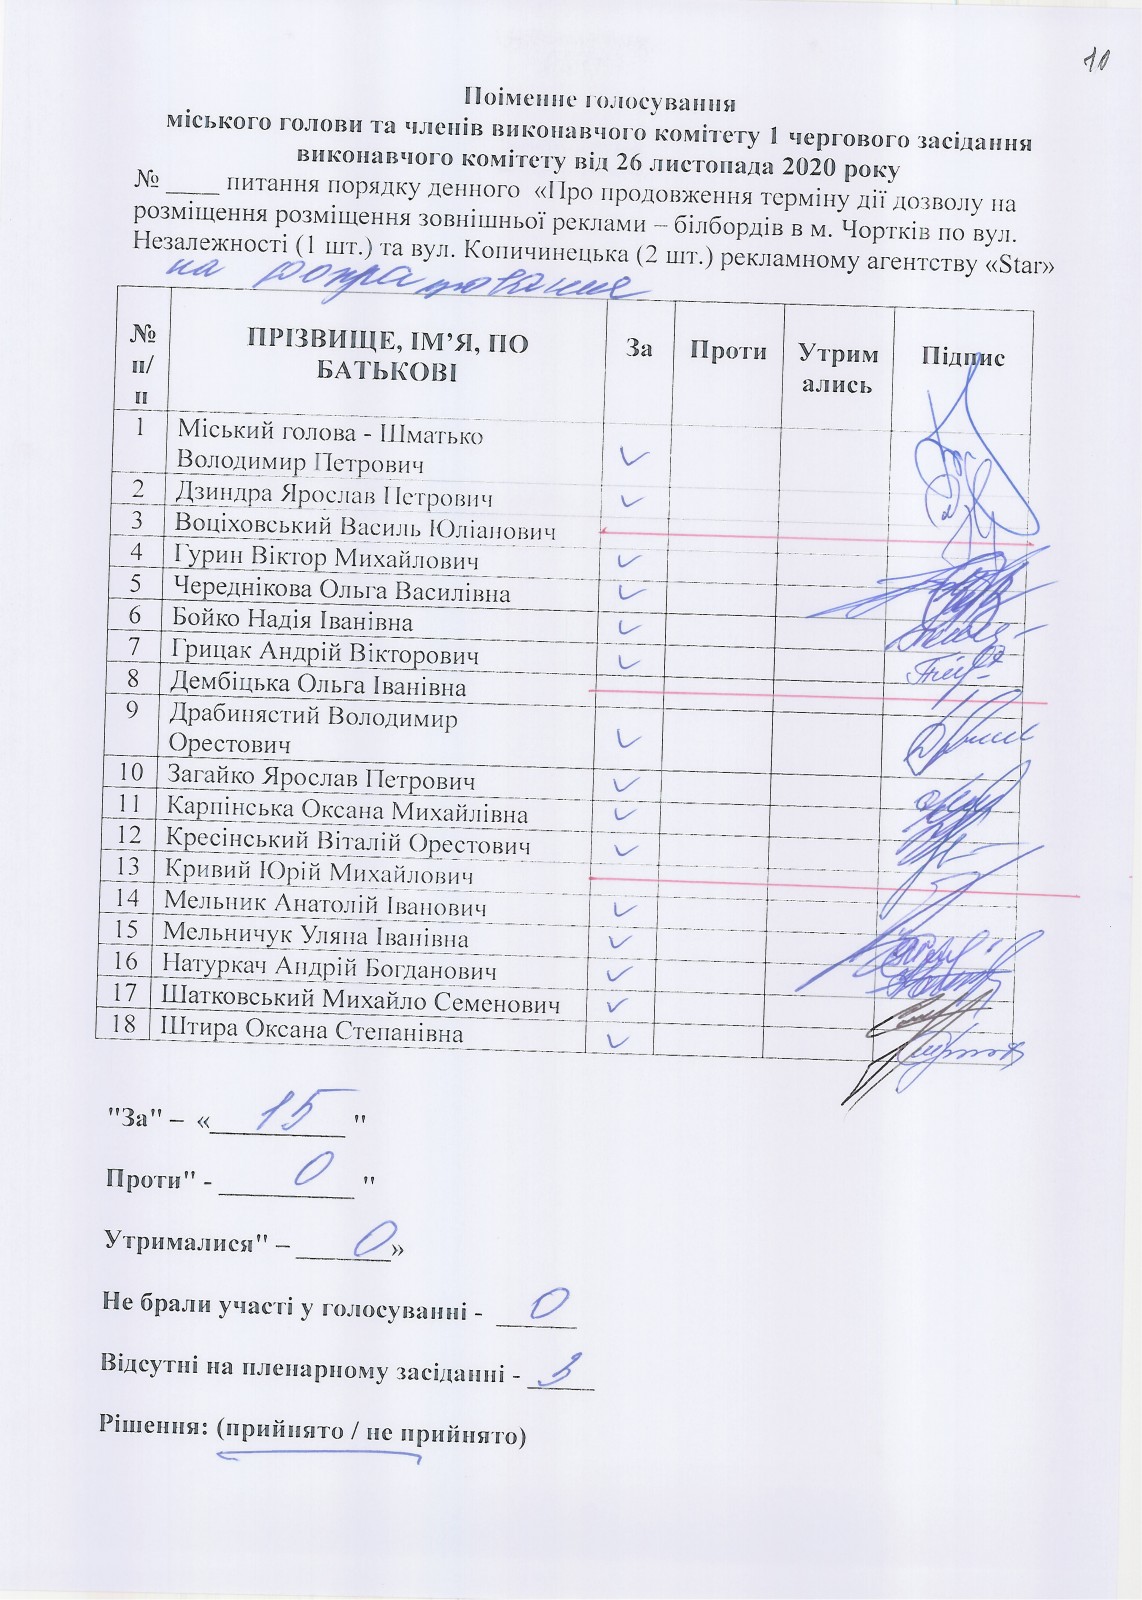 10
Поіменне голосування
міського голови та членів виконавчого комітету 1 чергового засідання
виконавчого комітету від 26 листопада 2020 року
№ ____ питання порядку денного «Про продовження терміну дії дозволу на
розміщення розміщення зовнішньої реклами – білбордів в м. Чортків по вул.
Незалежності (1 шт.) та вул. Копичинецька (2 шт.) рекламному агентству «Star»
на доопрацювання
№ п/п ПРІЗВИЩЕ, ІМ’Я, ПО БАТЬКОВІ За Проти Утримались Підпис
1 Міський голова - Шматько
Володимир Петрович ✓
2 Дзиндра Ярослав Петрович ✓
3 Воціховський Василь Юліанович
4 Гурин Віктор Михайлович ✓
5 Череднікова Ольга Василівна ✓
6 Бойко Надія Іванівна ✓
7 Грицак Андрій Вікторович ✓
8 Дембіцька Ольга Іванівна
9 Драбинястий Володимир
Орестович ✓
10 Загайко Ярослав Петрович ✓
11 Карпінська Оксана Михайлівна ✓
12 Кресінський Віталій Орестович ✓
13 Кривий Юрій Михайлович
14 Мельник Анатолій Іванович ✓
15 Мельничук Уляна Іванівна ✓
16 Натуркач Андрій Богданович ✓
17 Шатковський Михайло Семенович ✓
18 Штира Оксана Степанівна ✓
"За" – «15 "
Проти" - 0 "
Утрималися" – 0»
Не брали участі у голосуванні - 0
Відсутні на пленарному засіданні - 3
Рішення: (прийнято / не прийнято)